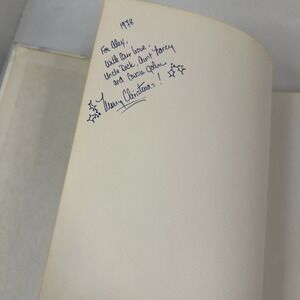 1978
For Alex,
With Our Love,
Uncle Dick, Aunt Nancy
and Cousin John
Merry Christmas!